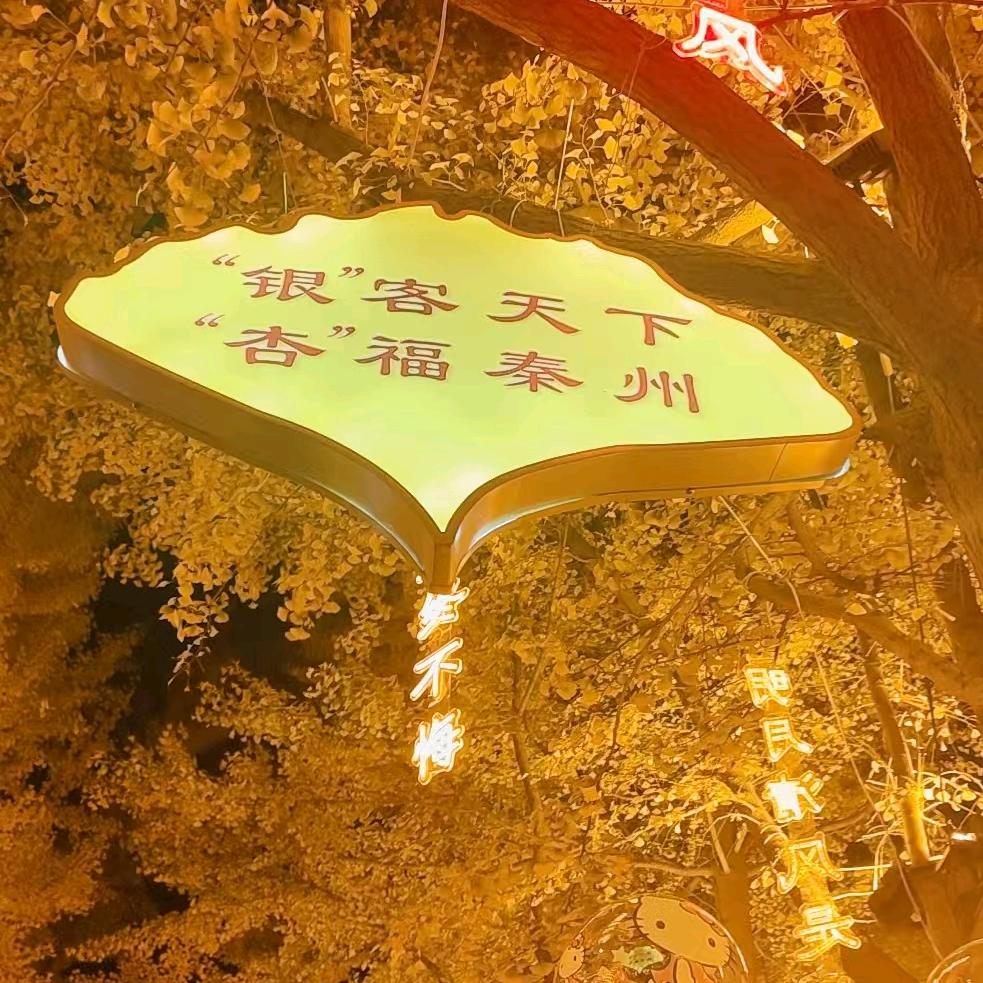 风
“银”客天下
“杏”福秦州
不悔
风